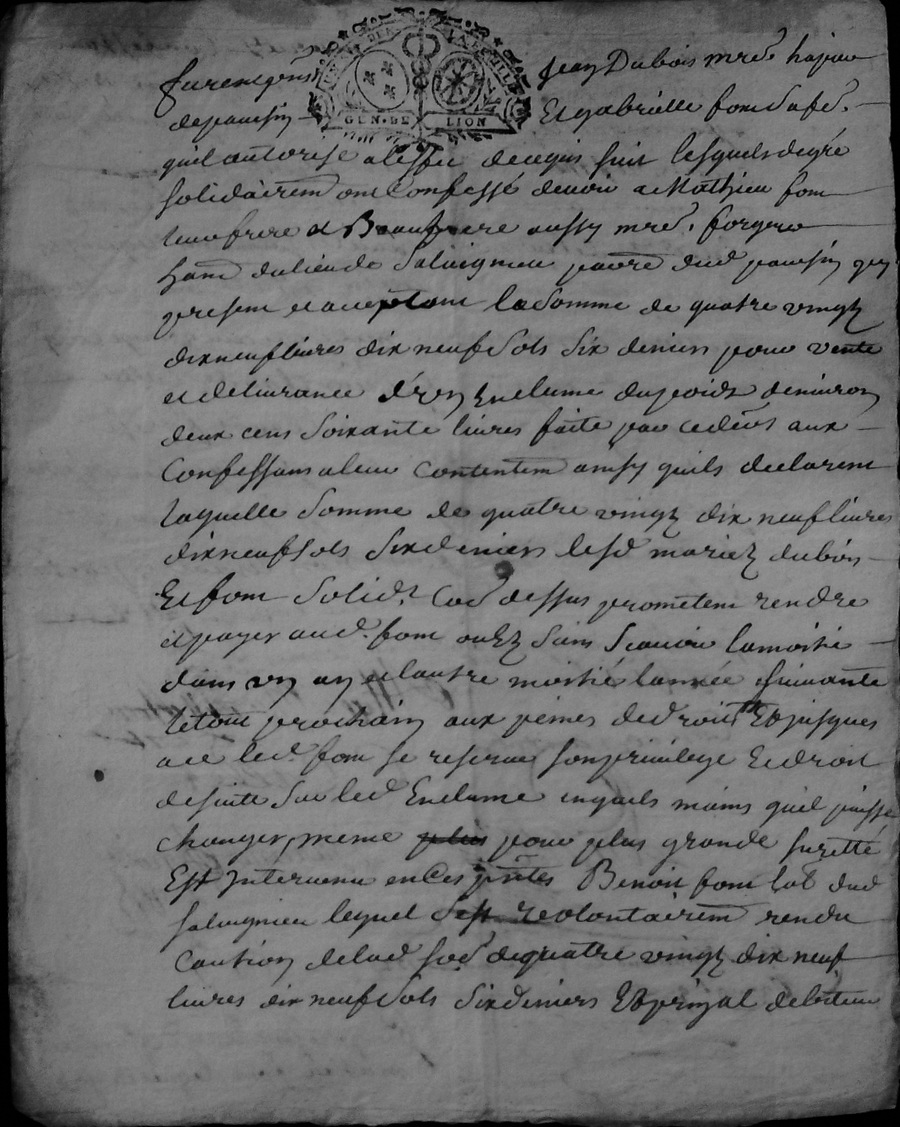 GEN·DE LION
furent pns Jean Dubois mre
de pousin Et gabrielle fond sa fe.
quil autorise a leffec de cequi suit lesquels de gré
solidairem ont Confessé devoir a Mathieu fom
leur frere et Beaufrere aussy mre. forgeur
ham du lieu de Salaignieu parre dud pousin
present et acceptant la somme de quatre vingt
dix neuf livres dix neuf sols six deniers pour vente
et delivrance d'vn Enclume du poids denviron
deux cens soixante livres faite par cedevt aux
Confessans a leur Contentem ainsy quils declarent
laquelle somme de quatre vingt dix neuf livres
dix neuf sols six deniers lesd mariez dubois
Et fom solid. Cod dessus prometent rendre
et payer aud. fom scavoir la moitié
dans vn an et lautre moitié lannée suivante
le tout prochain aux peines de droit Et jusques
a ce led. fom se reserve son privilege Et droit
de suite sur led Enclume en quels mains quil puisse
changer, meme plus pour plus grande suretté
Est Intervenu en Ces pntes Benoit fom lab dud
salaignieu lequel sest volontairem rendu
Caution de lad sod de quatre vingt dix neuf
livres dix neuf sols six deniers Et prinpal debiteur